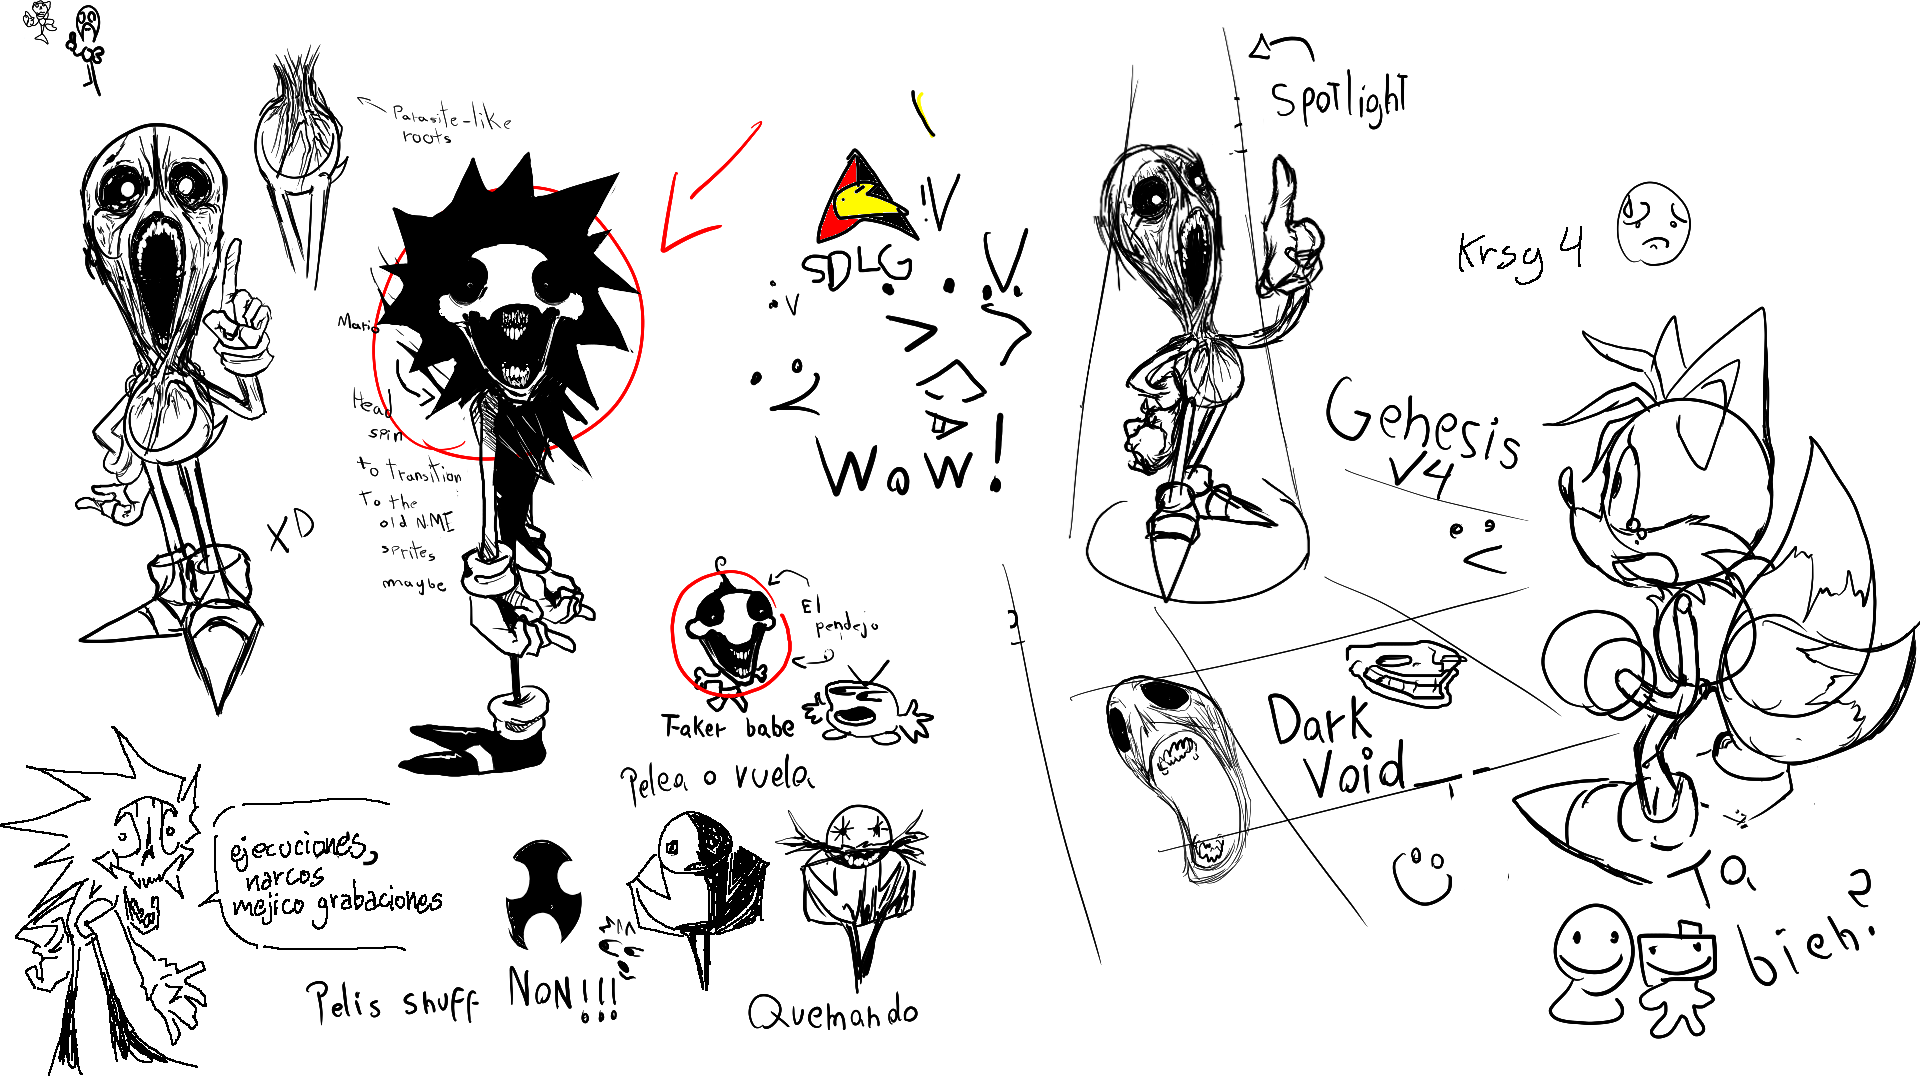 Parasite-like
roots
Mario
Head
spin
to transition
to the
old N.ME
sprites
maybe
XD
SDLG
!V
:V
. V.
WoW!
Spotlight
Krsy 4
Genesis
V4
:<
El
pendejo
Faker babe
Pelea o vuela
Dark
Void
ejecuciones,
narcos
mejico grabaciones
Pelis snuff
NON!!!
Quemando
Ta
bien?